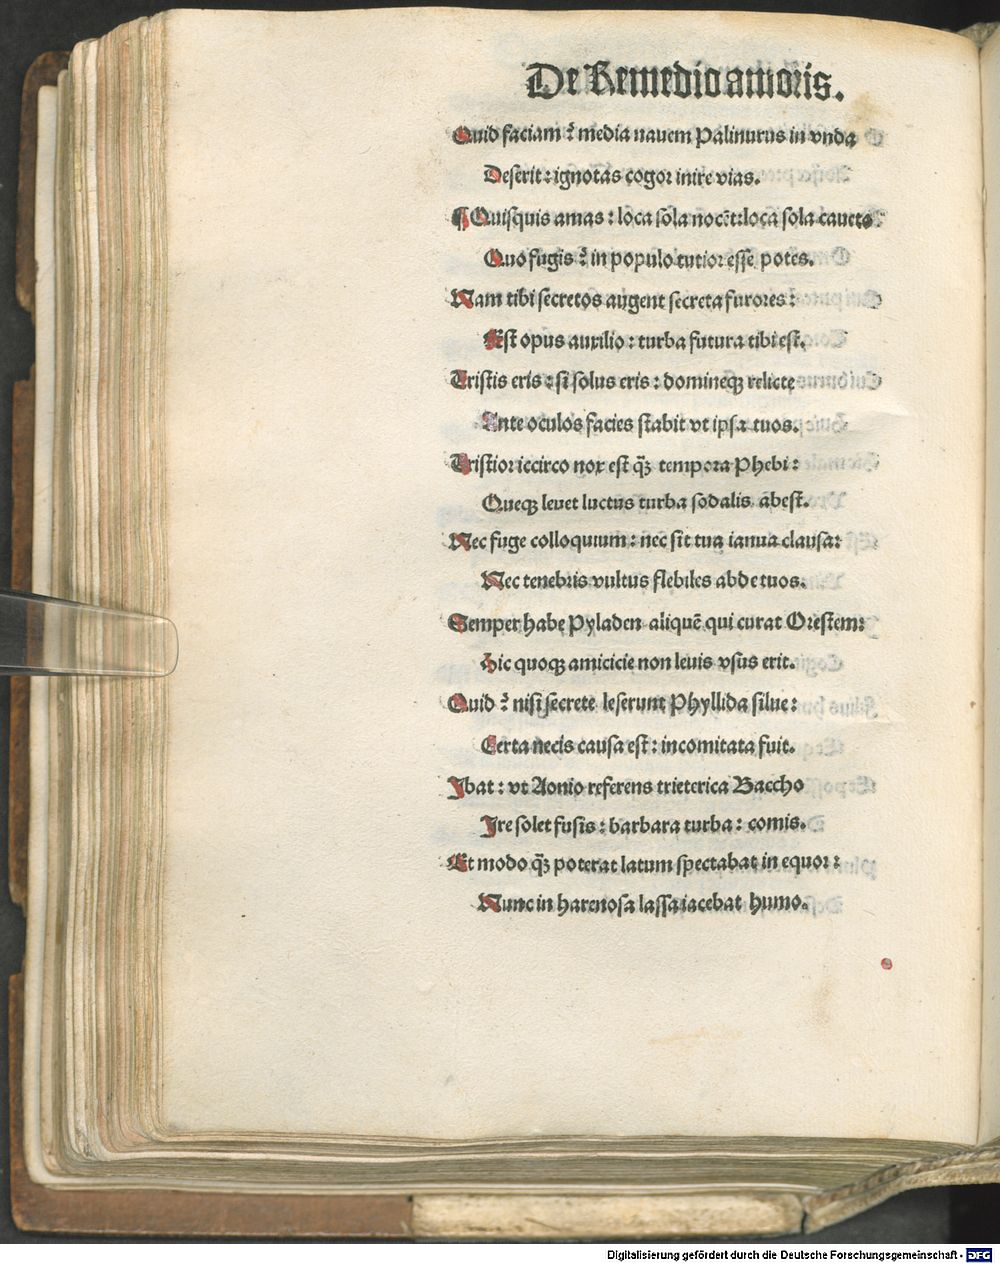 De Remedio amoris.
Quid faciam? media nauem Palinurus in vnda
Deserit: ignotas cogor inire vias.
¶ Quisquis amas: loca sola nocēt: loca sola caueto
Quo fugis? in populo tutior esse potes.
Nam tibi secretos augent secreta furores:
Est opus auxilio: turba futura tibi est.
Tristis eris: si solus eris: domineqꝫ relicte
Ante oculos facies stabit vt ipsa tuos.
Tristior iccirco nox est qꝫ̄ tempora Phebi:
Queqꝫ leuet luctus turba sodalis abest.
Nec fuge colloquium: nec sit tua ianua clausa:
Nec tenebris vultus flebiles abde tuos.
Semper habe Pyladen aliquē qui curat Orestem:
Hic quoqꝫ amicicie non leuis vsus erit.
Quid? nisi secrete leserunt Phyllida silue:
Certa necis causa est: incomitata fuit.
Ibat: vt Aonio referens trieterica Baccho
Ire solet fusis: barbara turba: comis.
Et modo qꝫ̄ poterat latum spectabat in equor:
Nunc in harenosa lassa iacebat humo.
Digitalisierung gefördert durch die Deutsche Forschungsgemeinschaft - DFG